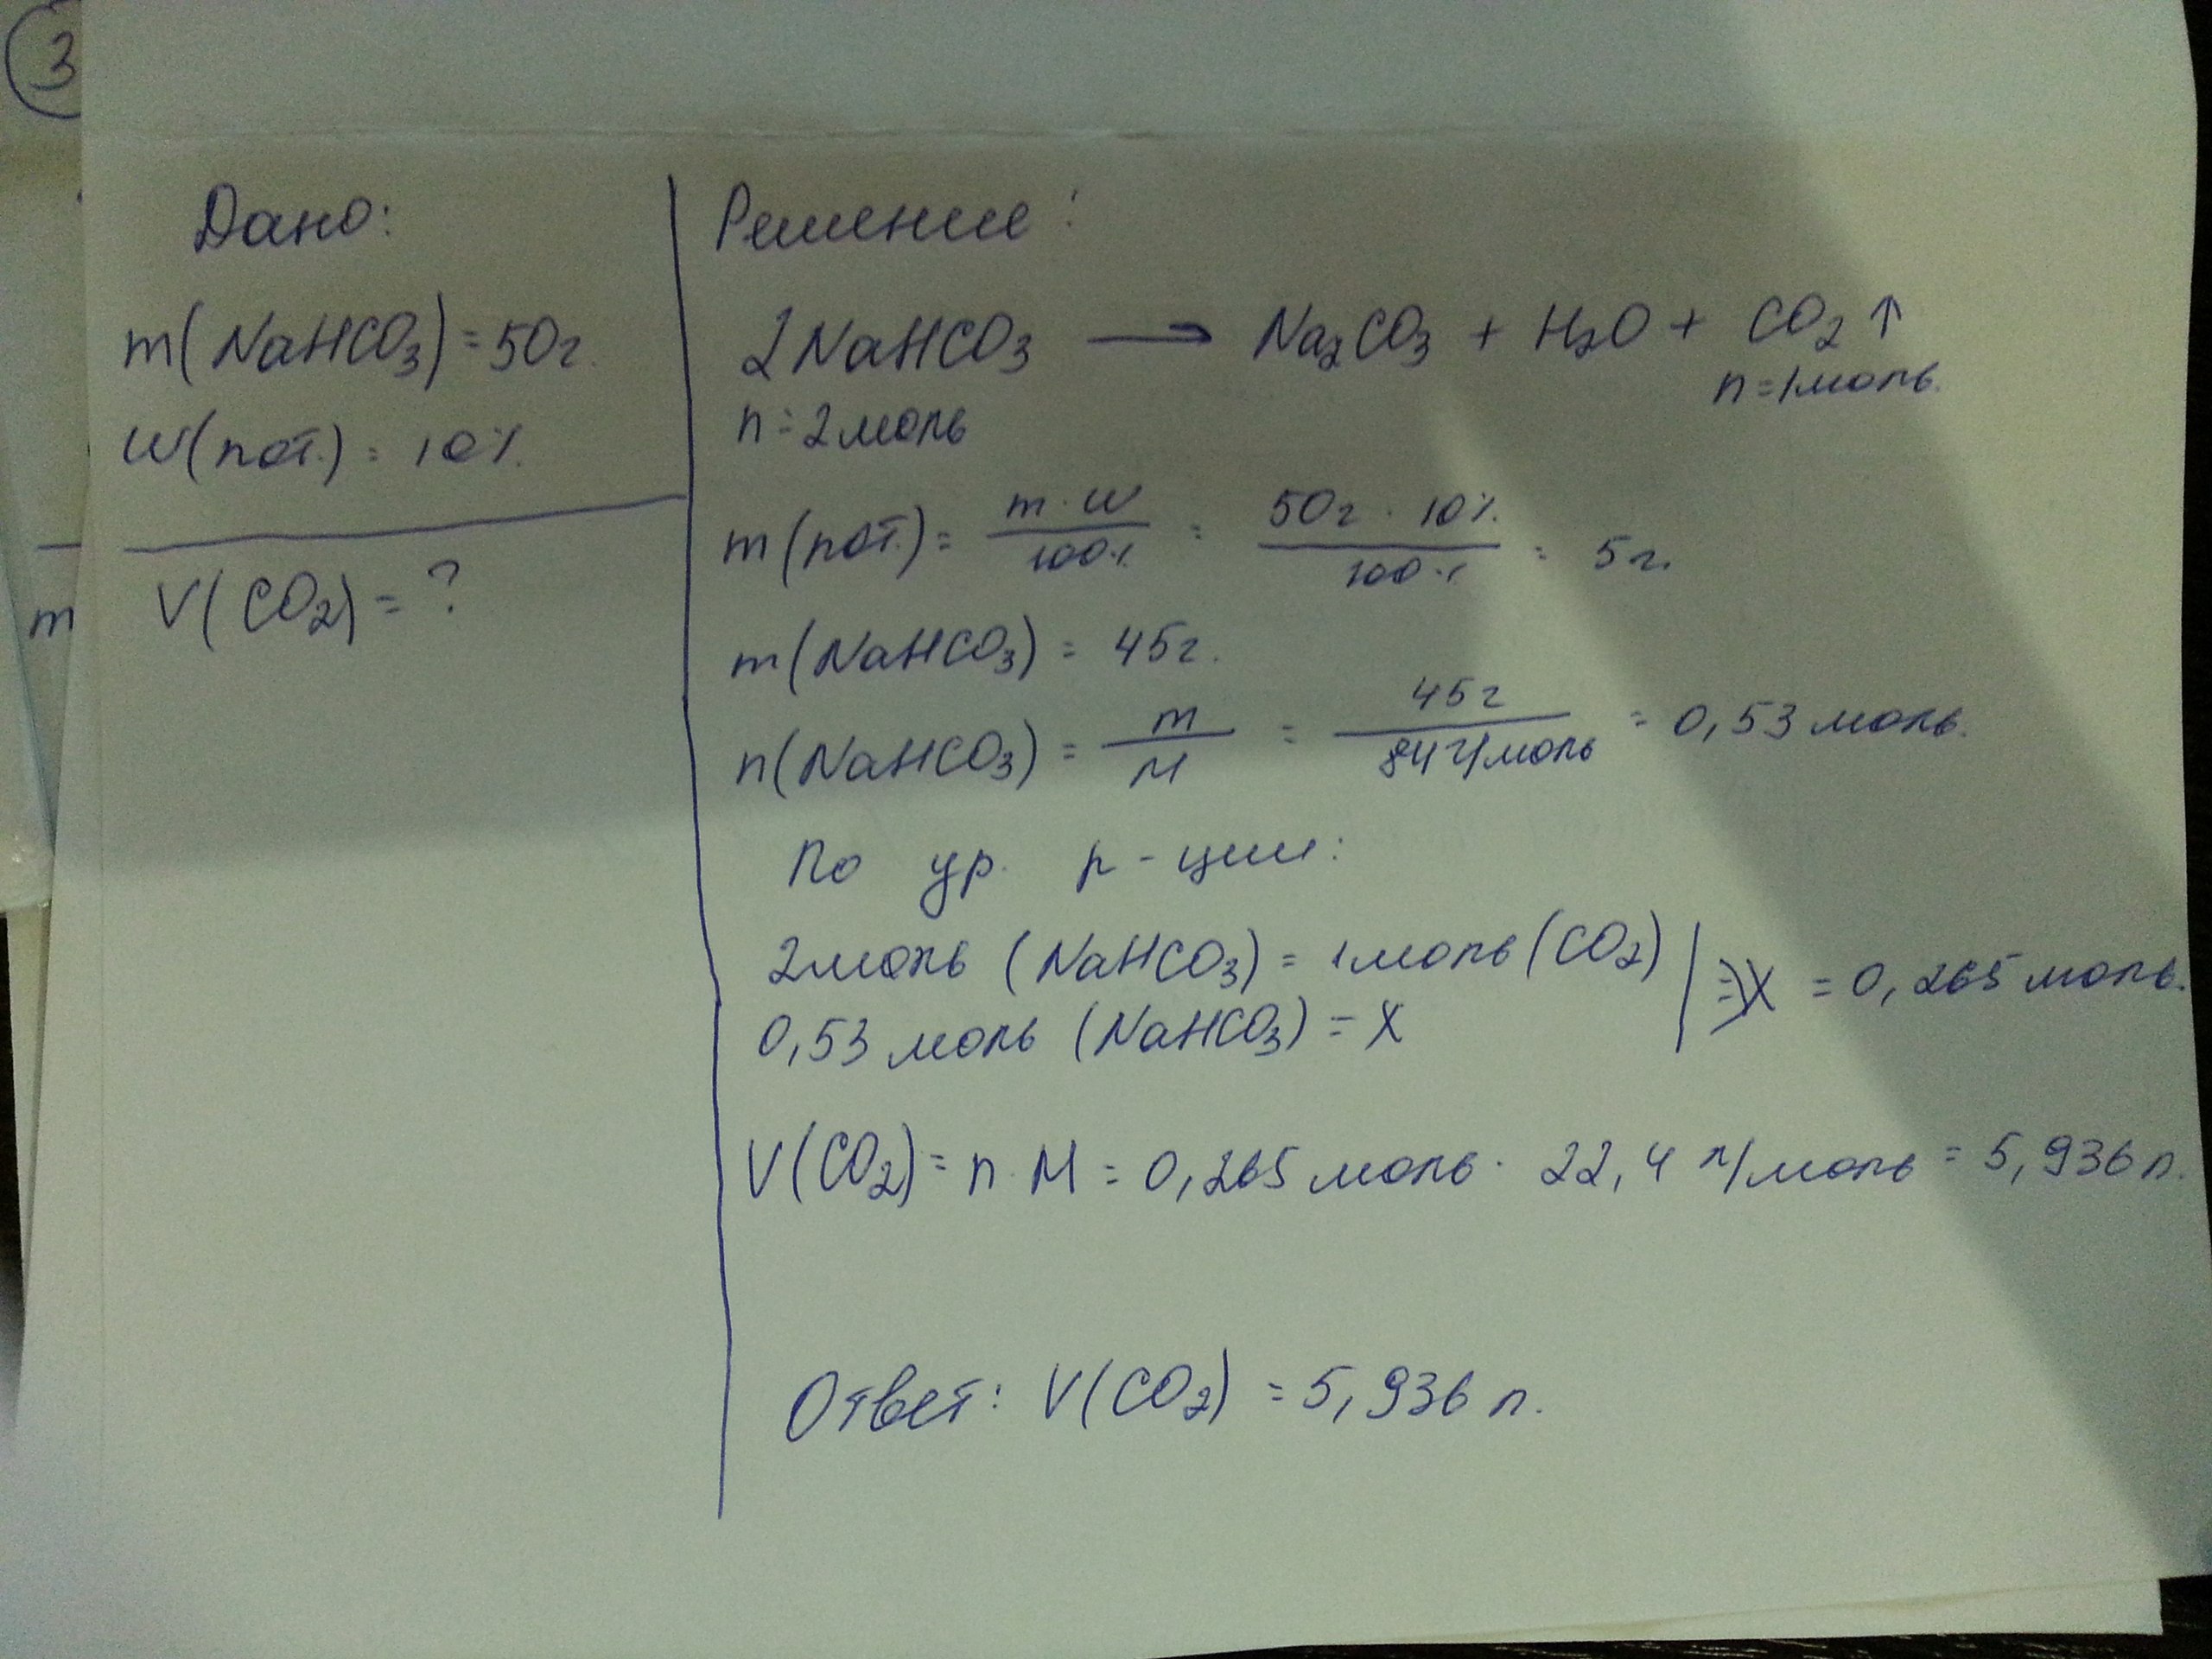 3
Дано:
m(NaHCO₃) = 50г.
W(пот.) = 10%.
V(CO₂) = ?
m
Решение:
2NaHCO₃ → Na₂CO₃ + H₂O + CO₂↑
n = 2 моль n = 1 моль.
m(пот.) = m · W / 100% = 50г · 10% / 100% = 5г.
m(NaHCO₃) = 45г.
n(NaHCO₃) = m / M = 45г / 84 г/моль = 0,53 моль.
По ур. р-ции:
2 моль (NaHCO₃) = 1 моль (CO₂) | ⇒ X = 0,265 моль.
0,53 моль (NaHCO₃) = X
V(CO₂) = n · M = 0,265 моль · 22,4 л/моль = 5,936 л.
Ответ: V(CO₂) = 5,936 л.